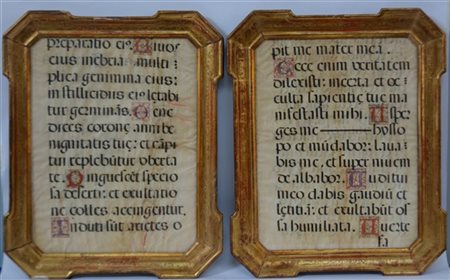 preparatio ei⁹. Riuos
eius inebria multi
plica genimina eius:
in stillicidiis ei⁹ lętabi
tur germinãs. Bene
dices coronę anni be
nignitatis tuę: et cãpi
tui replebũtur uberta
te. Pinguescẽt specio
sa deserti: et exultatio
ne colles accingentur.
Induti sũt arietes o
pit me mater mea.
Ecce enim ueritatem
dilexisti: incerta et oc
culta sapientię tuę ma
nifestasti mihi. Asper
ges me hysso
po et mũdabor: laua
bis me, et super niuem
de albabor. Auditui
meo dabis gaudiũ et
lętitiã: et exultabũt os
sa humiliata. Auerte
fa